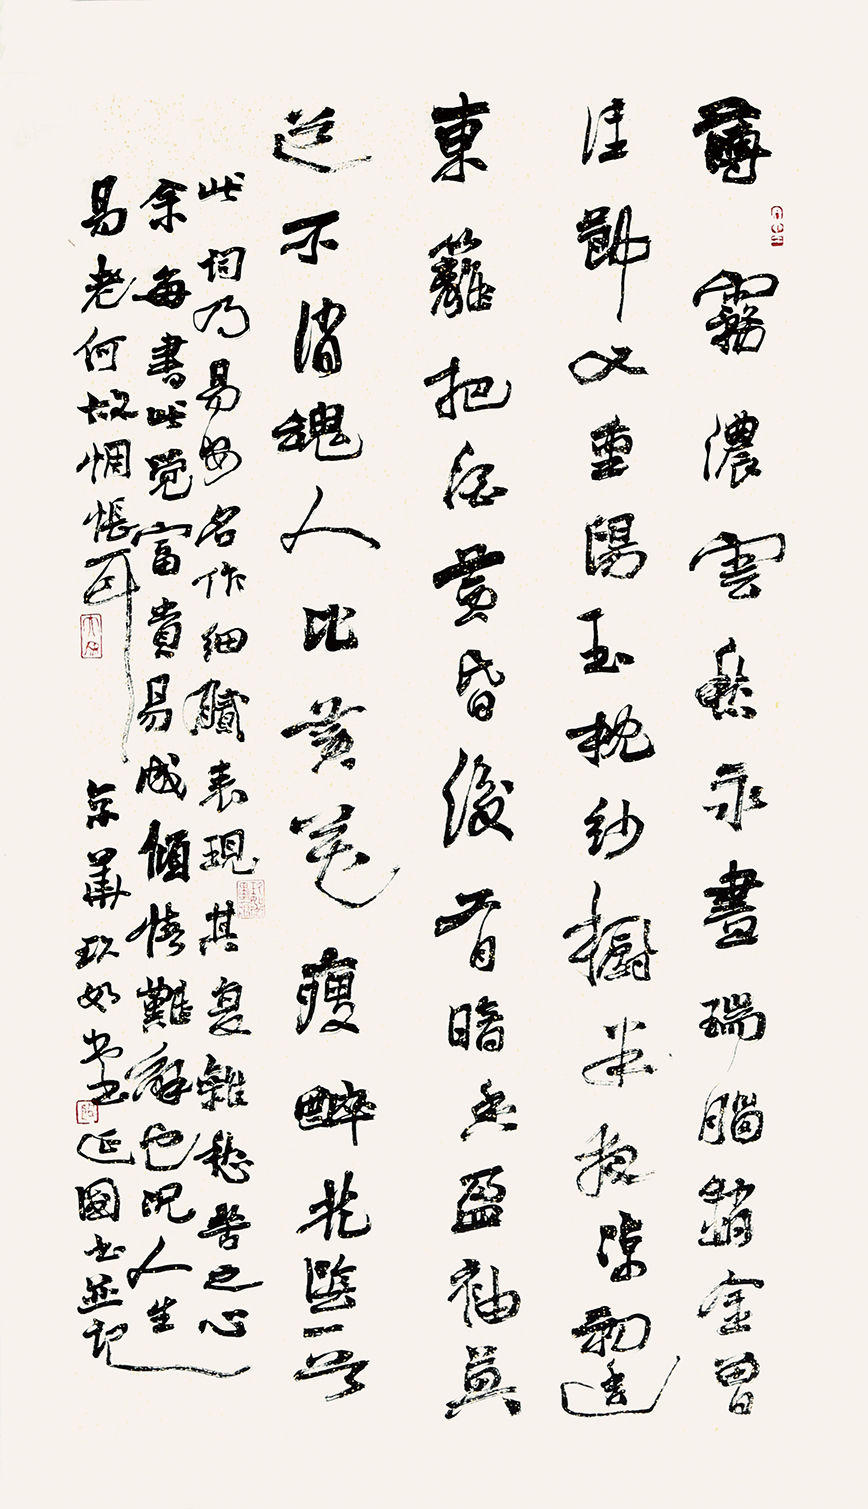 薄霧濃雲愁永晝瑞腦銷金兽
佳節又重陽玉枕紗櫥半夜涼初透
東籬把酒黃昏後有暗香盈袖莫
道不消魂人比黃花瘦醉花陰一首
此詞乃易安名作細膩表現其复雜愁苦之心
余每書此覺富貴易成傾情難解也況人生
易老何故惆悵耳 京華玖如堂延國書並記